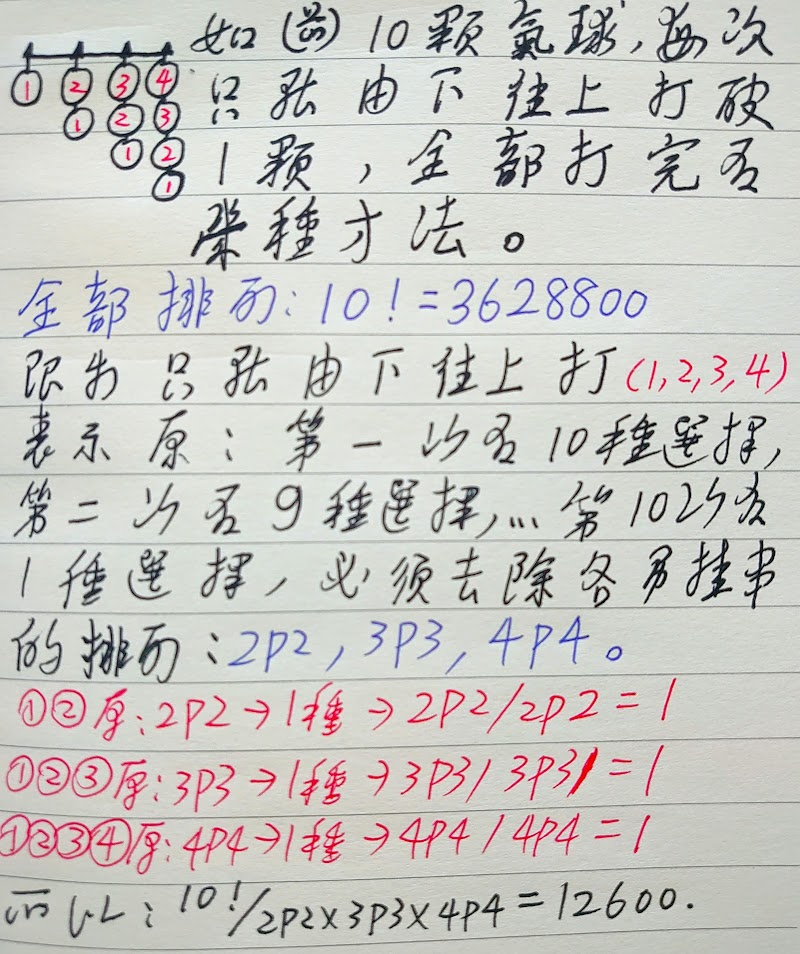 ① ② ③ ④ 如(圖) 10 顆氣球, 每次
① ② ③ 只能由下往上打破
① ② 1 顆, 全部打完有
① 幾種方法。
全部排列: 10! = 3628800
限制只能由下往上打(1,2,3,4)
表示原: 第一次有10種選擇,
第二次有9種選擇,... 第10次有
1種選擇, 必須去除各別掛串
的排列: 2P2, 3P3, 4P4。
①②原: 2P2→1種→2P2/2P2=1
①②③原: 3P3→1種→3P3/3P3=1
①②③④原: 4P4→1種→4P4/4P4=1
所以: 10!/2P2×3P3×4P4=12600.